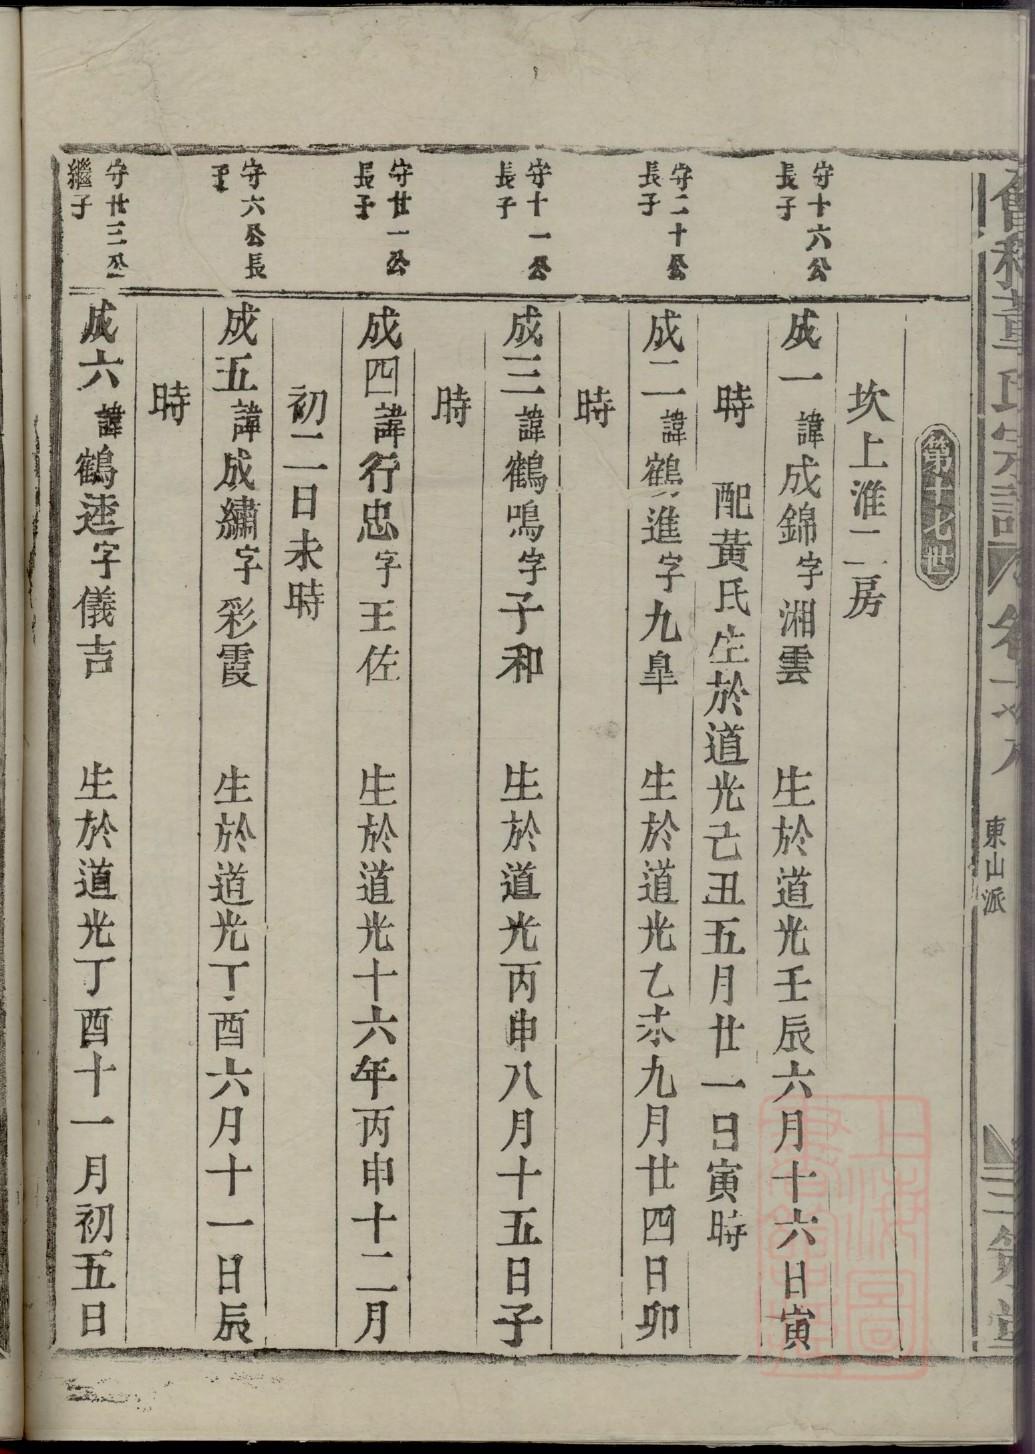 董氏宗譜
東山派
三策堂
第十七世
坎上淮二房
守十六公
長子
成一諱成錦字湘雲 生於道光壬辰六月十六日寅
時 配黃氏生於道光己丑五月廿一日寅時
守二十公
長子
成二諱鶴進字九臯 生於道光乙未九月廿四日卯
時
守十一公
長子
成三諱鶴鳴字子和 生於道光丙申八月十五日子
時
守廿一公
長子
成四諱行忠字王佐 生於道光十六年丙申十二月
初二日未時
守六公長
子
成五諱成繡字彩霞 生於道光丁酉六月十一日辰
時
守廿三公
繼子
成六諱鶴逵字儀吉 生於道光丁酉十一月初五日